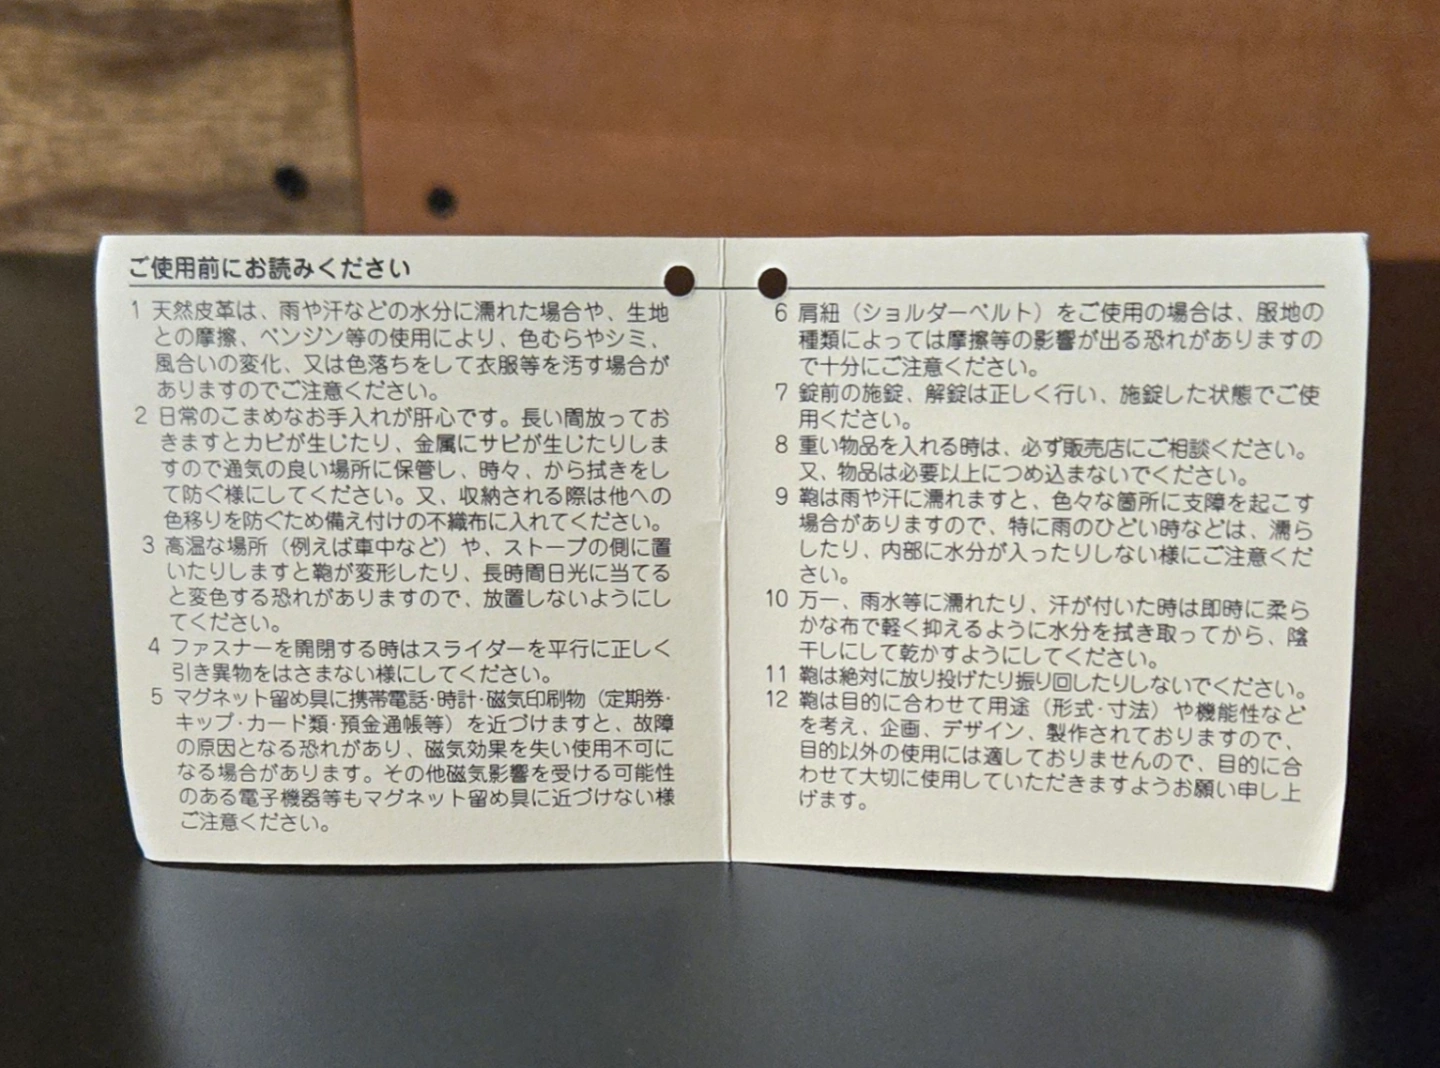 ご使用前にお読みください
1 天然皮革は、雨や汗などの水分に濡れた場合や、生地
との摩擦、ベンジン等の使用により、色むらやシミ、
風合いの変化、又は色落ちをして衣服等を汚す場合が
ありますのでご注意ください。
2 日常のこまめなお手入れが肝心です。長い間放ってお
きますとカビが生じたり、金属にサビが生じたりしま
すので通気の良い場所に保管し、時々、から拭きをし
て防ぐ様にしてください。又、収納される際は他への
色移りを防ぐため備え付けの不織布に入れてください。
3 高温な場所（例えば車中など）や、ストーブの側に置
いたりしますと鞄が変形したり、長時間日光に当てる
と変色する恐れがありますので、放置しないようにし
てください。
4 ファスナーを開閉する時はスライダーを平行に正しく
引き異物をはさまない様にしてください。
5 マグネット留め具に携帯電話・時計・磁気印刷物（定期券・
キップ・カード類・預金通帳等）を近づけますと、故障
の原因となる恐れがあり、磁気効果を失い使用不可に
なる場合があります。その他磁気影響を受ける可能性
のある電子機器等もマグネット留め具に近づけない様
ご注意ください。
6 肩紐（ショルダーベルト）をご使用の場合は、服地の
種類によっては摩擦等の影響が出る恐れがありますの
で十分にご注意ください。
7 錠前の施錠、解錠は正しく行い、施錠した状態でご使
用ください。
8 重い物品を入れる時は、必ず販売店にご相談ください。
又、物品は必要以上につめ込まないでください。
9 鞄は雨や汗に濡れますと、色々な箇所に支障を起こす
場合がありますので、特に雨のひどい時などは、濡ら
したり、内部に水分が入ったりしない様にご注意くだ
さい。
10 万一、雨水等に濡れたり、汗が付いた時は即時に柔ら
かな布で軽く抑えるように水分を拭き取ってから、陰
干しにして乾かすようにしてください。
11 鞄は絶対に放り投げたり振り回したりしないでください。
12 鞄は目的に合わせて用途（形式・寸法）や機能性など
を考え、企画、デザイン、製作されておりますので、
目的以外の使用には適しておりませんので、目的に合
わせて大切に使用していただきますようお願い申し上
げます。